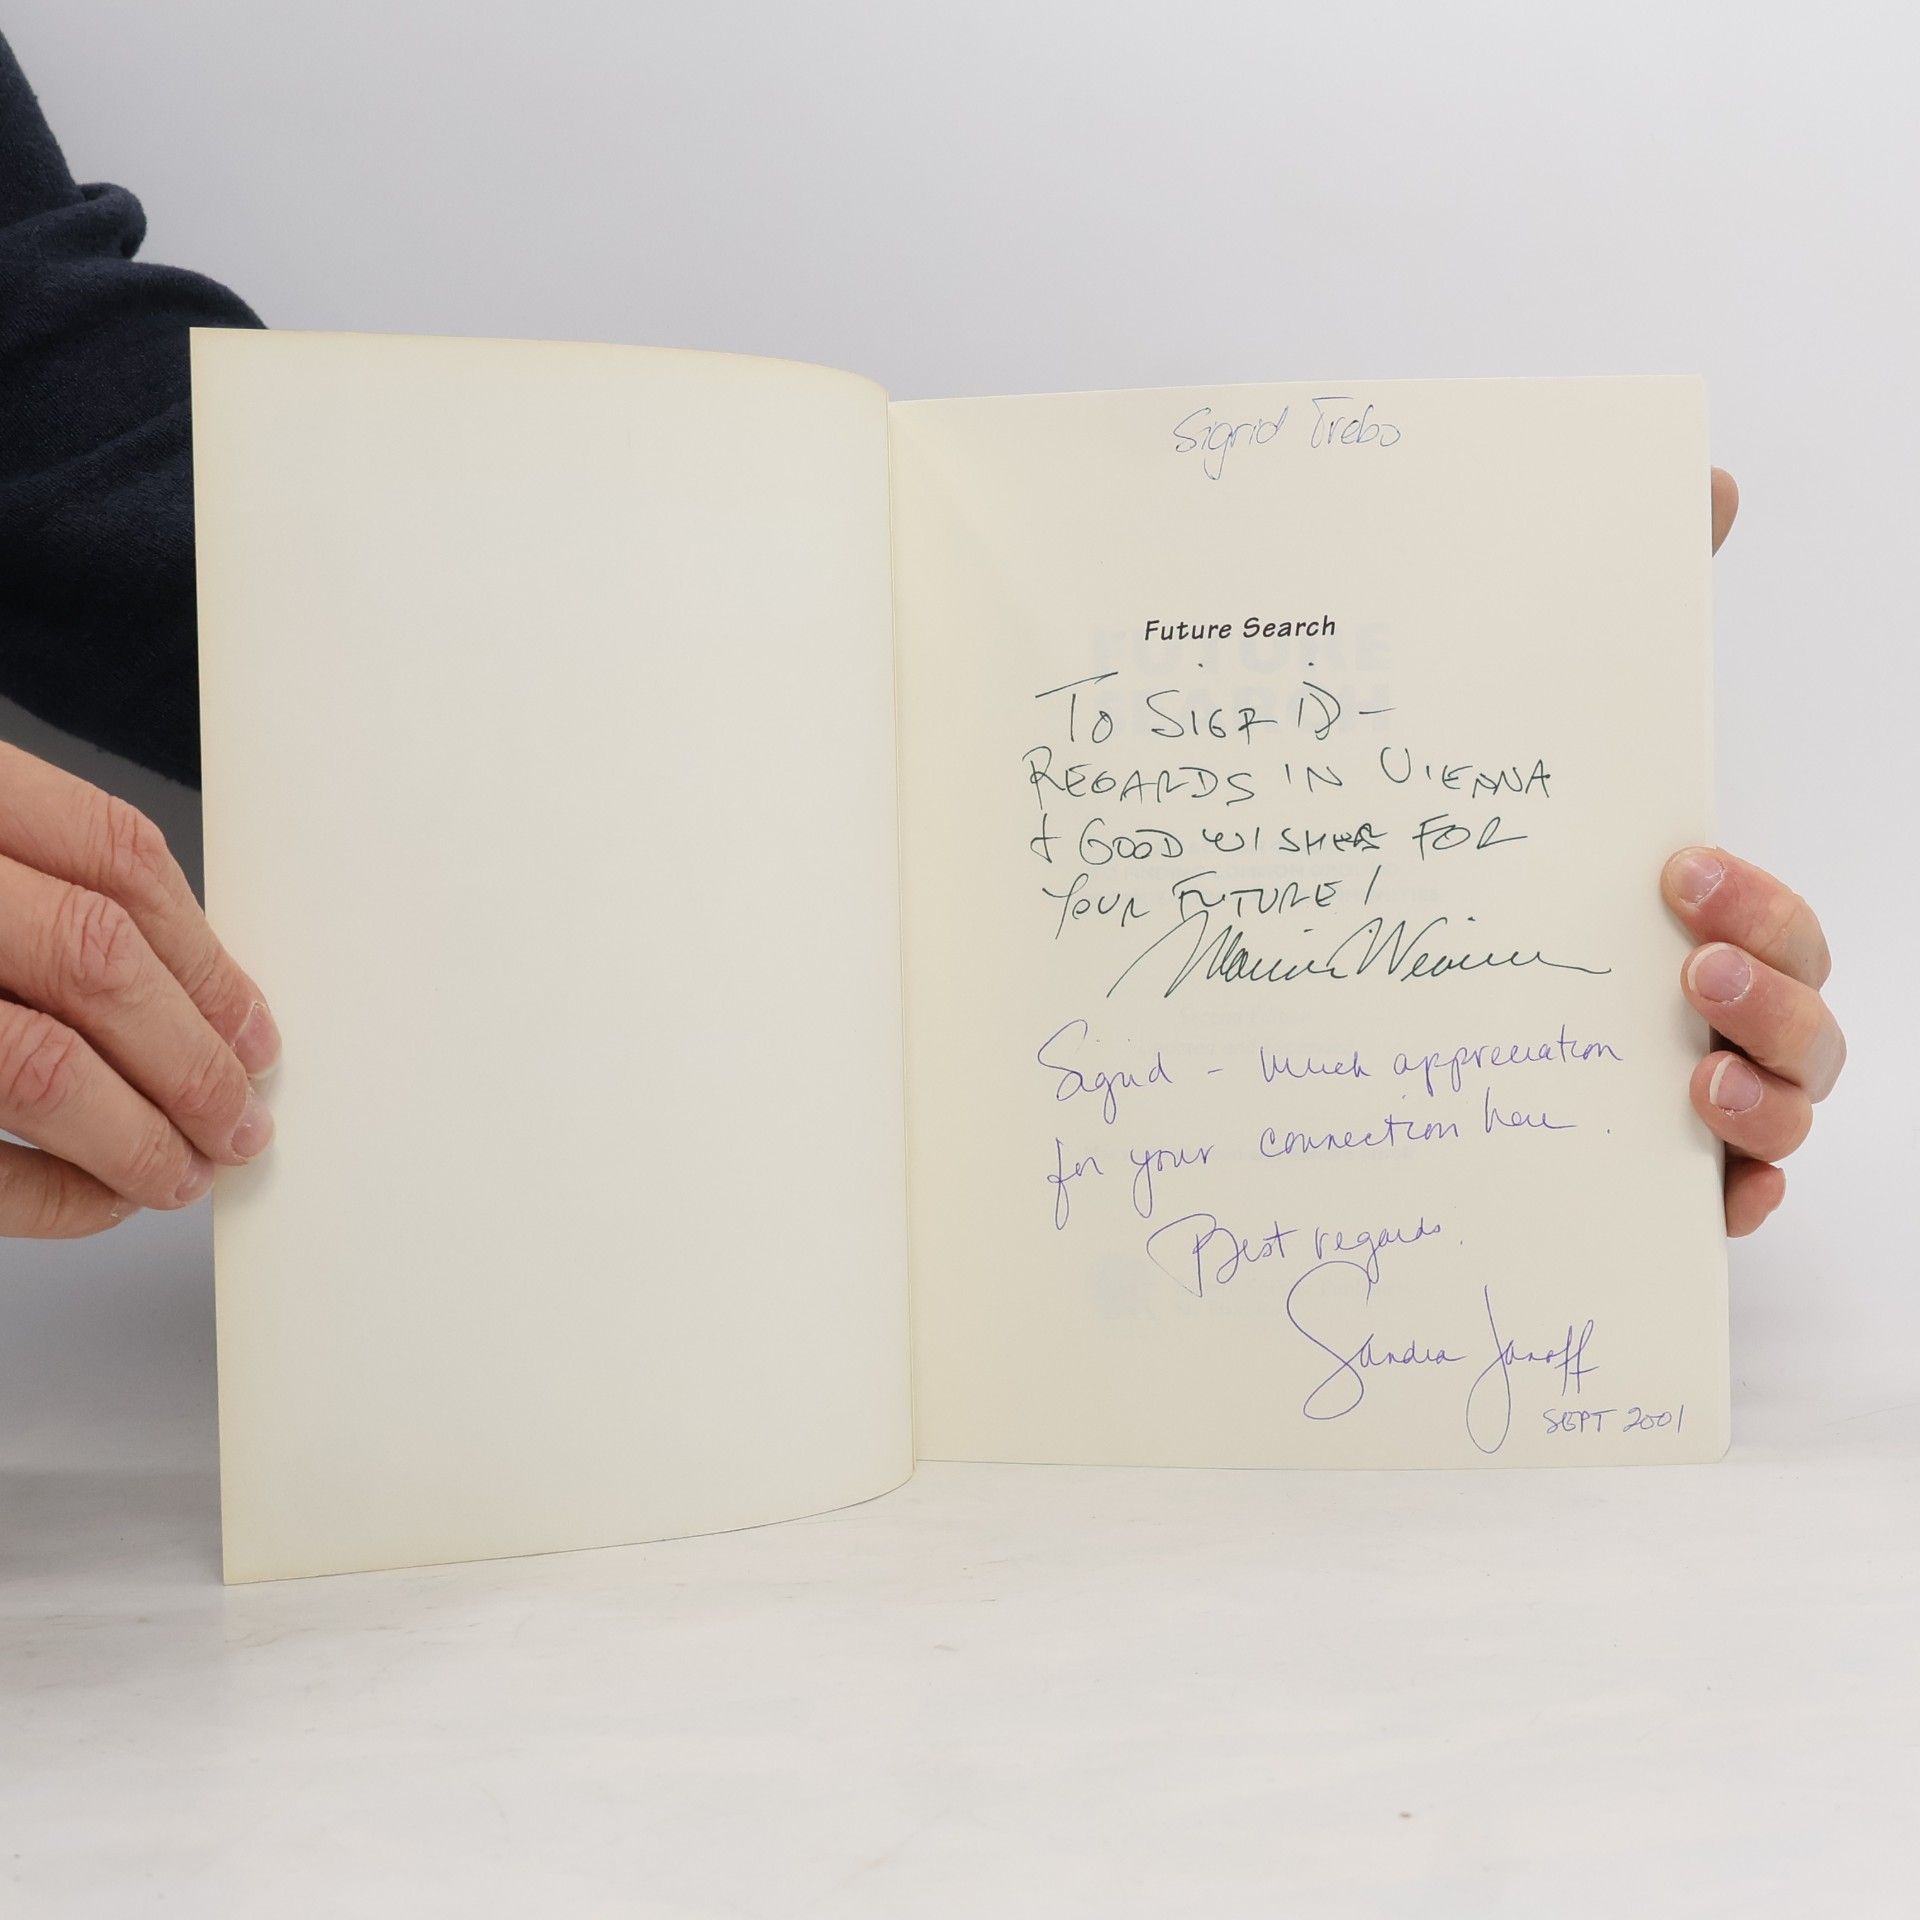 Sigrid Trebo
Future Search
TO SIGRID -
REGARDS IN VIENNA
+ GOOD WISHES FOR
YOUR FUTURE!
Marvin Weisbord
Sigrid - Much appreciation
for your connection here.
Best regards,
Sandra Janoff
SEPT 2001